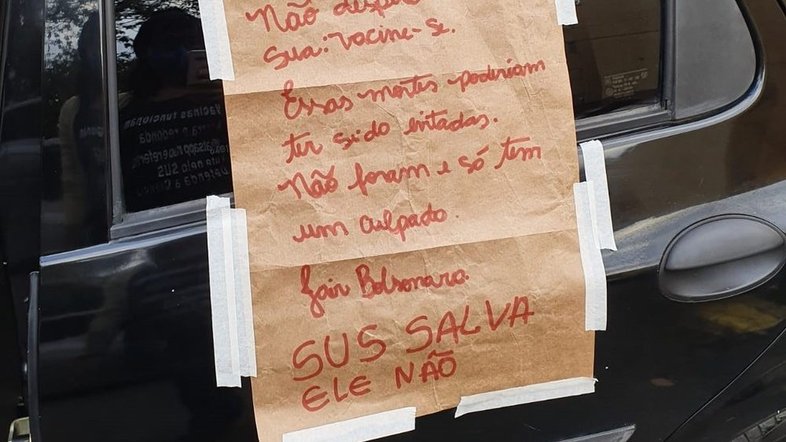 Não
sua: vacine-se.
Essas mortes poderiam
ter sido evitadas.
Não foram e só tem
um culpado.
Jair Bolsonaro.
SUS SALVA
ELE NÃO
Vacinas funcionam
é redonda
SUS
Defenda a